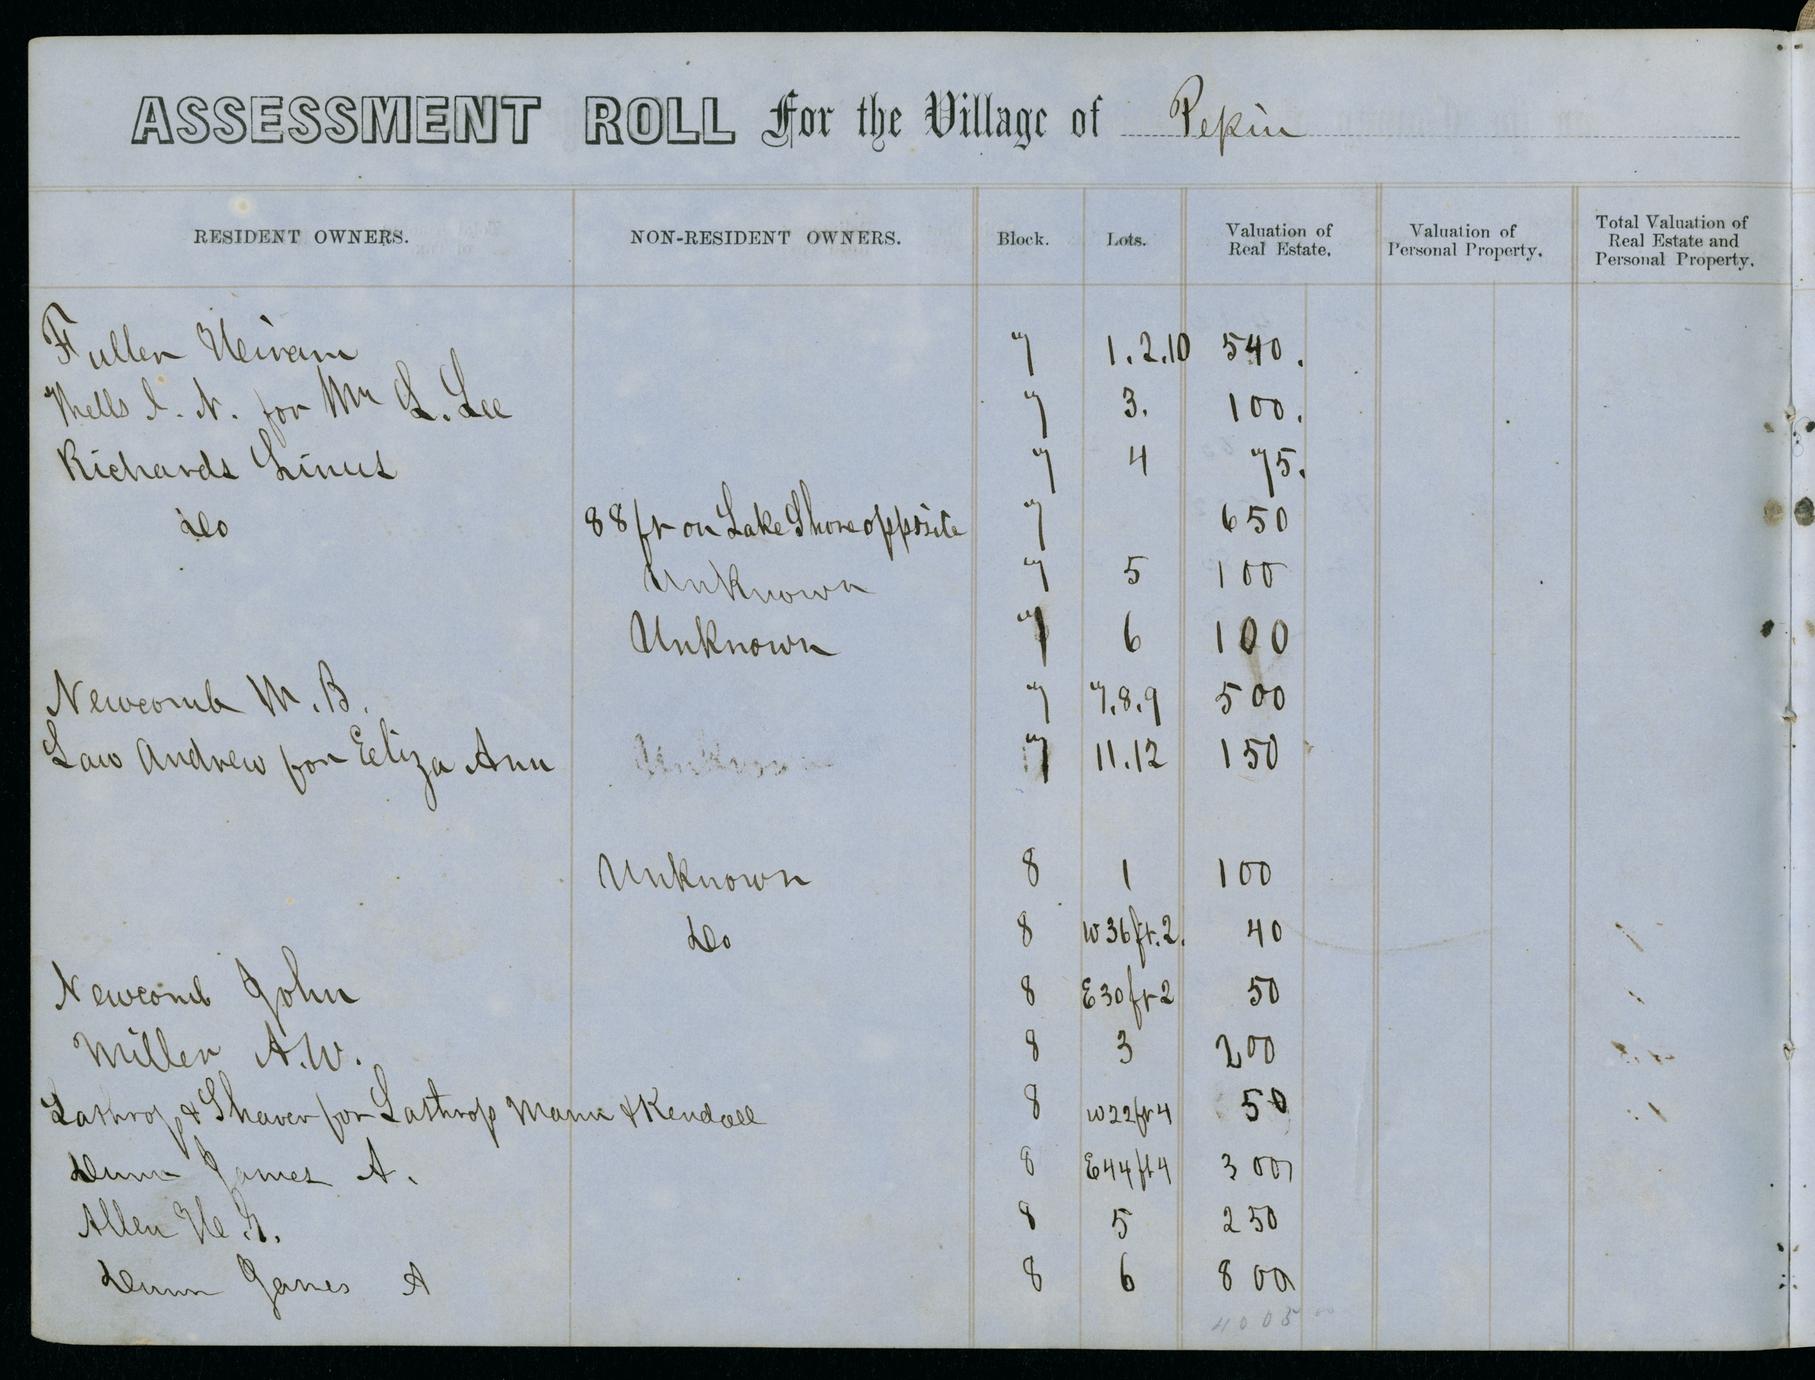 ASSESSMENT ROLL For the Village of Pekin
RESIDENT OWNERS. NON-RESIDENT OWNERS. Block. Lots. Valuation of Real Estate. Valuation of Personal Property. Total Valuation of Real Estate and Personal Property.
Fuller Heiram 7 1.2.10 540.
N. for Mr L. Lee 7 3. 100.
Richards Linus 7 4 75.
Do 88 ft on Lake Shore opposite 7 650
Unknown 7 5 100
Unknown 7 6 100
Newcomb M. B. 7 7.8.9 500
Law Andrew for Eliza Ann Unknown 7 11.12 150
Unknown 8 1 100
Do 8 W 36 ft. 2. 40
Newcomb John 8 E 30 ft 2 50
Miller A. W. 8 3 200
Lathrop & Shaver for Lathrop Mann & Kendall 8 W 22 ft 4 50
Dunn James A. 8 E 44 ft 4 300
Allen H. G. 8 5 250
Dunn James A 8 6 800
4005 00